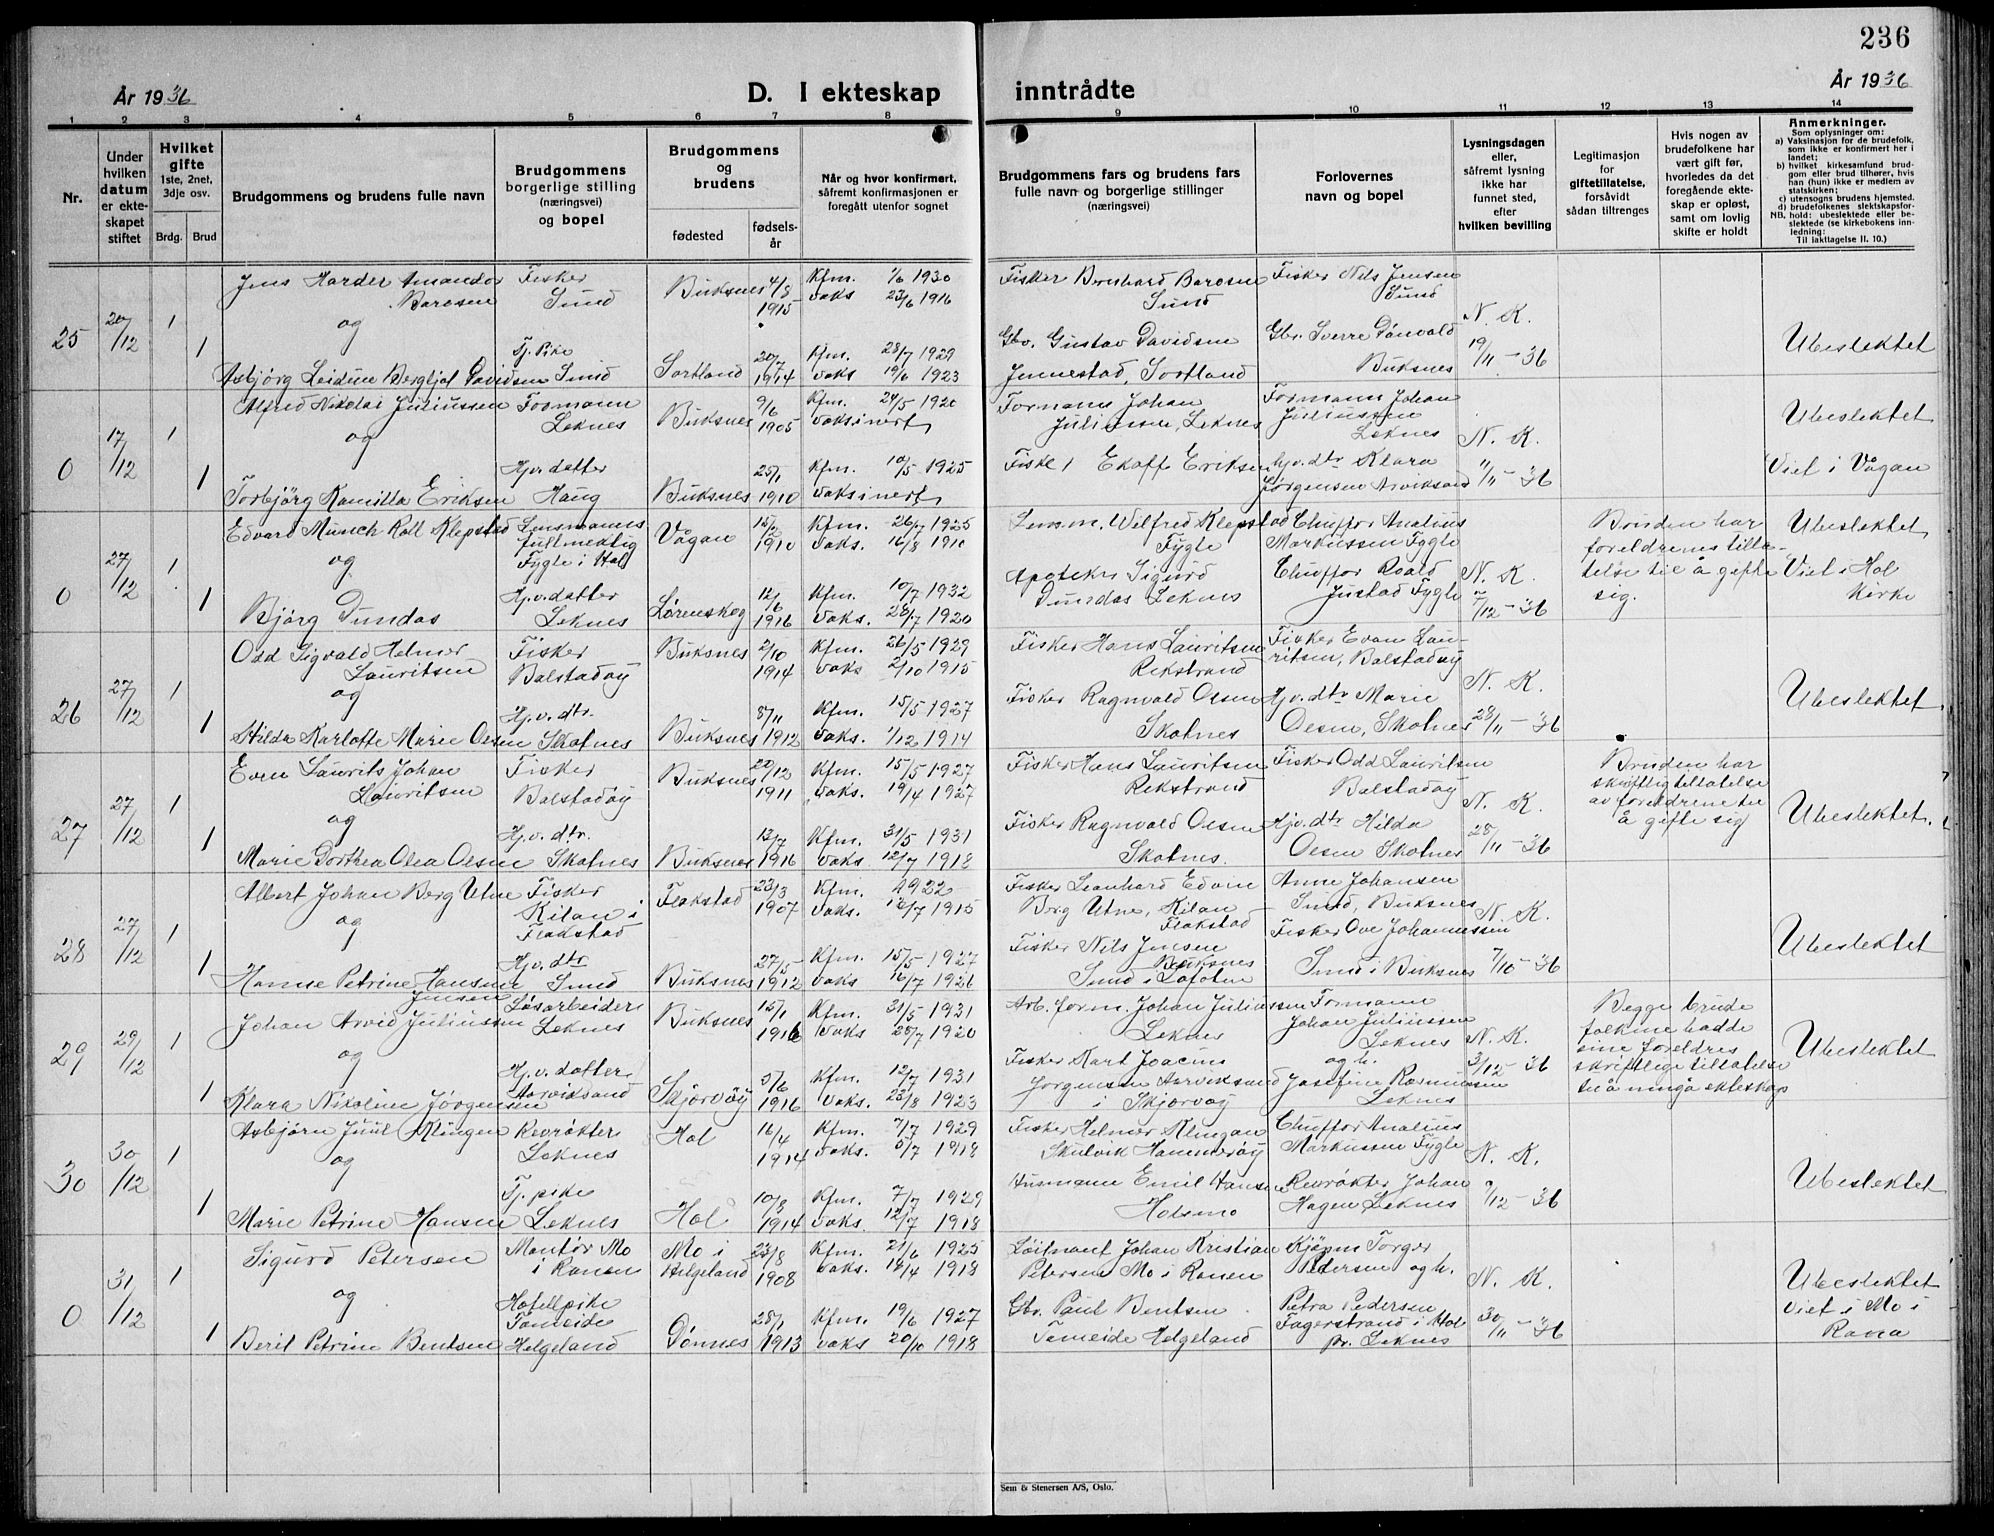 236
År 1936
D. I ekteskap inntrådte
År 1936
1 2 3 4 5 6 7 8 9 10 11 12 13 14
Nr.
Under hvilken datum er ekteskapet stiftet
Hvilket gifte 1ste, 2net, 3dje osv.
Brdg. Brud
Brudgommens og brudens fulle navn
Brudgommens borgerlige stilling (næringsvei) og bopel
Brudgommens og brudens
fødested
fødsels-år
Når og hvor konfirmert, såfremt konfirmasjonen er foregått utenfor sognet
Brudgommens fars og brudens fars fulle navn og borgerlige stillinger (næringsvei)
Forlovernes navn og bopel
Lysningsdagen eller, såfremt lysning ikke har funnet sted, efter hvilken bevilling
Legitimasjon for giftetillatelse, forsåvidt sådan tiltrenges
Hvis nogen av brudefolkene har vært gift før, hvorledes da det foregående ekteskap er opløst, samt om lovlig skifte er holdt
Anmerkninger.
Som oplysninger om:
a) Vaksinasjon for de brudefolk, som ikke er konfirmert her i landet;
b) hvilket kirkesamfund brudgom eller brud tilhører, hvis han (hun) ikke er medlem av statskirken;
c) utensogns brudens hjemsted.
d) brudefolkenes slektskapsforhold: ubeslektede eller beslektede (se kirkebokens innledning:
NB.
Til iakttagelse II. 10.)
25 20/12 1 Jens Harder Amandor Barosen Fisker Sund Buksnes 4/8 1915 Kfm. 1/6 1930 vaks 23/6 1916 Fisker Bernhard Barosen Sund Fisker Nils Jensen Sund N. K. 19/11 - 36 Ubeslektet
og
1 Asbjörg Leidun Bergljot Davidsen Tj. Pike Sund Sortland 20/7 1914 Kfm. 28/7 1929 vaks 19/6 1923 Gbr. Gustav Davidsen Jennestad, Sortland Gbr. Sverre Dønvold Buksnes
0 17/12 1 Alfred Nikolai Juliussen Formann Leknes Buksnes 9/6 1905 Kfm. 24/5 1920 vaksinert Formann Johan Juliussen, Leknes Formann Johan Juliussen Leknes N. K. 11/11 - 36 Ubeslektet Viet i Vågan
og
1 Torbjörg Kamilla Eriksen Hjv. datter Haug Buksnes 25/1 1910 Kfm. 10/5 1925 vaksinert Eriksen hjv. dtr Klara Jørgensen Arviksand
0 27/12 1 Edvard Munch Roll Klepstad Lensmanns fullmektig Fygle i Hol Vågan 15/2 1910 Kfm. 26/7 1925 Vaks. 16/8 1910 Lensm. Wilfred Klepstad Fygle Chuffør Analius Markussen Fygle N. K. 7/12 - 36 Bruden har foreldrenes tillatelse til å gifte sig. Ubeslektet Viet i Hol Kirke
og
1 Bjørg Dundas Hj.v. datter Leknes Lørenskog 12/6 1916 Kfm. 10/7 1932 Vaks. 28/7 1920 Apoteker Sigurd Dundas Leknes Chuffør Roald Justad Fygle
26 27/12 1 Odd Sigvald Helmer Lauritsen Fisker Balstadøy Buksnes 2/10 1914 Kfm. 26/5 1929 vaks 2/10 1915 Fisker Hans Lauritsen Rekstrand Fisker Even Lauritsen, Balstadøy N. K. 28/11 - 36 Ubeslektet.
og
1 Hilda Karlotte Marie Olsen Hj.v. dtr. Skotnes Buksnes 8/11 1912 Kfm. 15/5 1927 Vaks. 1/12 1914 Fisker Ragnvald Olsen Skotnes Hj.v. dtr Marie Olsen, Skotnes
27 27/12 1 Even Laurits Johan Lauritsen Fisker Balstadøy Buksnes 20/12 1911 Kfm. 15/5 1927 Vaks. 19/4 1927 Fisker Hans Lauritsen Rekstrand Fisker Odd Lauritsen Balstadøy N. K. 28/11 - 36 Bruden har skriftlig tillatelse av foreldrene til å gifte sig Ubeslektet.
og
1 Marie Dorthea Olea Olsen Hj.v. dtr. Skotnes Buksnes 13/7 1916 Kfm. 31/5 1931 Vaks. 12/7 1918 Fisker Ragnvald Olsen Skotnes. Hjv. dtr Hilda Olsen Skotnes
28 27/12 1 Albert Johan Berg Utne Fisker Kilan i Flakstad Flakstad 23/3 1907 Kfm. 1922 Vaks. 12/7 1915 Fisker Leonhard Edvin Berg Utne, Kilan Flakstad Anne Johansen Sund, Buksnes N. K. 7/10 - 36 Ubeslektet
og
1 Hanne Petrine Hansine Jensen Hj.v. dtr Sund Buksnes 27/5 1912 Kfm. 15/5 1927 Vaks 12/7 1926 Fisker Nils Jensen Buksnes Sund i Lofoten Fisker Ove Johannessen Sund i Buksnes
29 29/12 1 Johan Arvid Juliussen Løsarbeider Leknes Buksnes 15/1 1916 Kfm. 31/5 1931 Vaks 28/7 1920 Arb. form. Johan Juliussen Leknes Formann Johan Juliussen Leknes N. K. 3/12 - 36 Begge brudefolkene hadde sine foreldres skriftlige tillatelse til å inngå ekteskap Ubeslektet
og
1 Klara Nikoline Jørgensen Hj.v. datter, Arviksand Skjervøy 5/6 1916 Kfm. 12/7 1931 Vaks. 23/8 1923 Fisker Kart Joacim Jörgensen Arviksand i Skjervøy og h. Josefine Rasmussen Leknes
30 30/12 1 Asbjørn Juul Klingen Revrøkter Leknes Hol 16/4 1914 Kfm. 7/7 1929 vaks. 5/7 1918 Fisker Helmer Klingan Skulvik Hammerøy Chuffør Analius Markussen Fygle N. K. 9/12 - 36 Ubeslektet
og
1 Marie Petrine Hansen Tj. pike Leknes Hol 10/8 1914 Kfm. 7/7 1929 Vaks. 12/7 1918 Husmann Emil Hansen Holsmo Revrøkter Johan Hagen Leknes
0 31/12 1 Sigurd Petersen Montör Mo i Ranen Mo i Helgeland 23/8 1908 Kfm. 21/6 1925 Vaks. 18/4 1918 Löitnant Johan Kristian Petersen Mo i Ranen Kjöpm Torger Pedersen og h. N. K. 30/11 - 36 Ubeslektet Viet i Mo i Rana
og
1 Berit Petrine Bentsen Hotellpike Tomeide Helgeland Dönnes 28/1 1913 Kfm. 19/6 1927 vaks 20/10 1918 Gbr. Paul Bentsen Tomeide Helgeland Petra Pedersen Fagerstrand i Hol pr. Leknes
Sem & Stenersen A/S, Oslo.